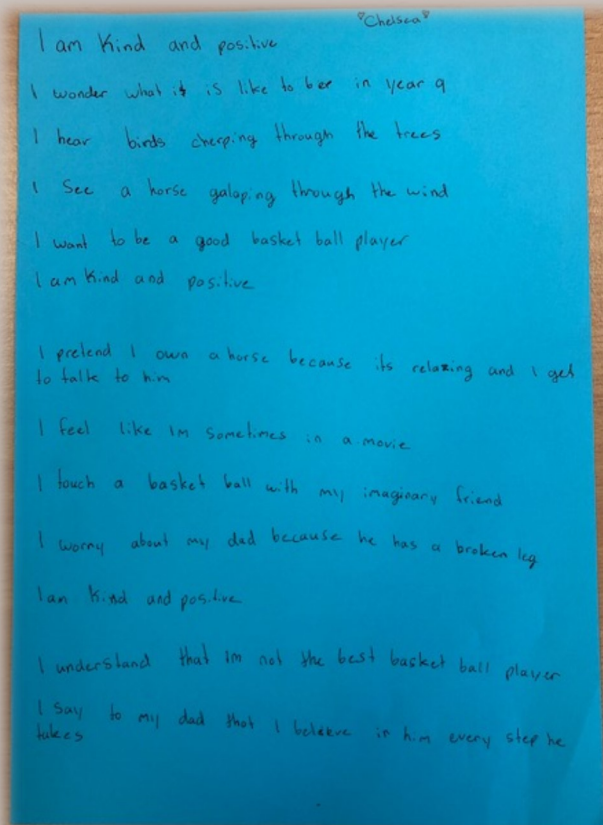 "Chelsea"
I am Kind and positive
I wonder what it is like to be in year 9
I hear birds cherping through the trees
I See a horse galoping through the wind
I want to be a good basket ball player
I am Kind and positive
I pretend I own a horse because its relaxing and I get
to talk to him
I feel like Im sometimes in a movie
I touch a basket ball with my imaginary friend
I worry about my dad because he has a broken leg
I am Kind and positive
I understand that Im not the best basket ball player
I say to my dad that I beleave in him every step he
takes